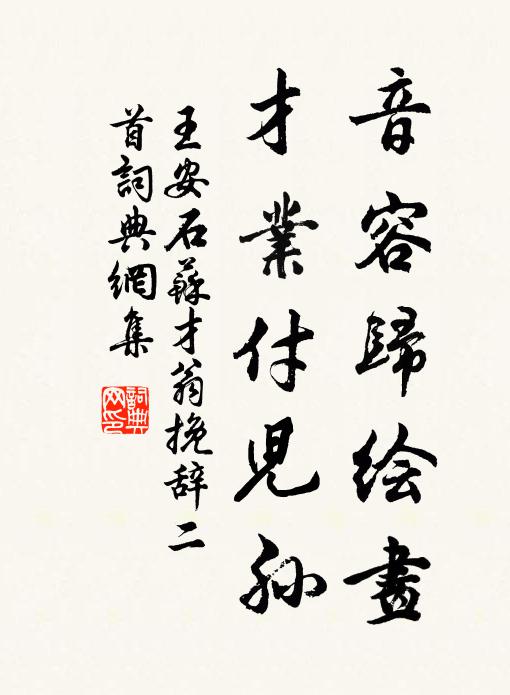 音容歸绘畫
才業付児孫
王安石蘇才翁挽辞二
首詞典網集
詞典网印